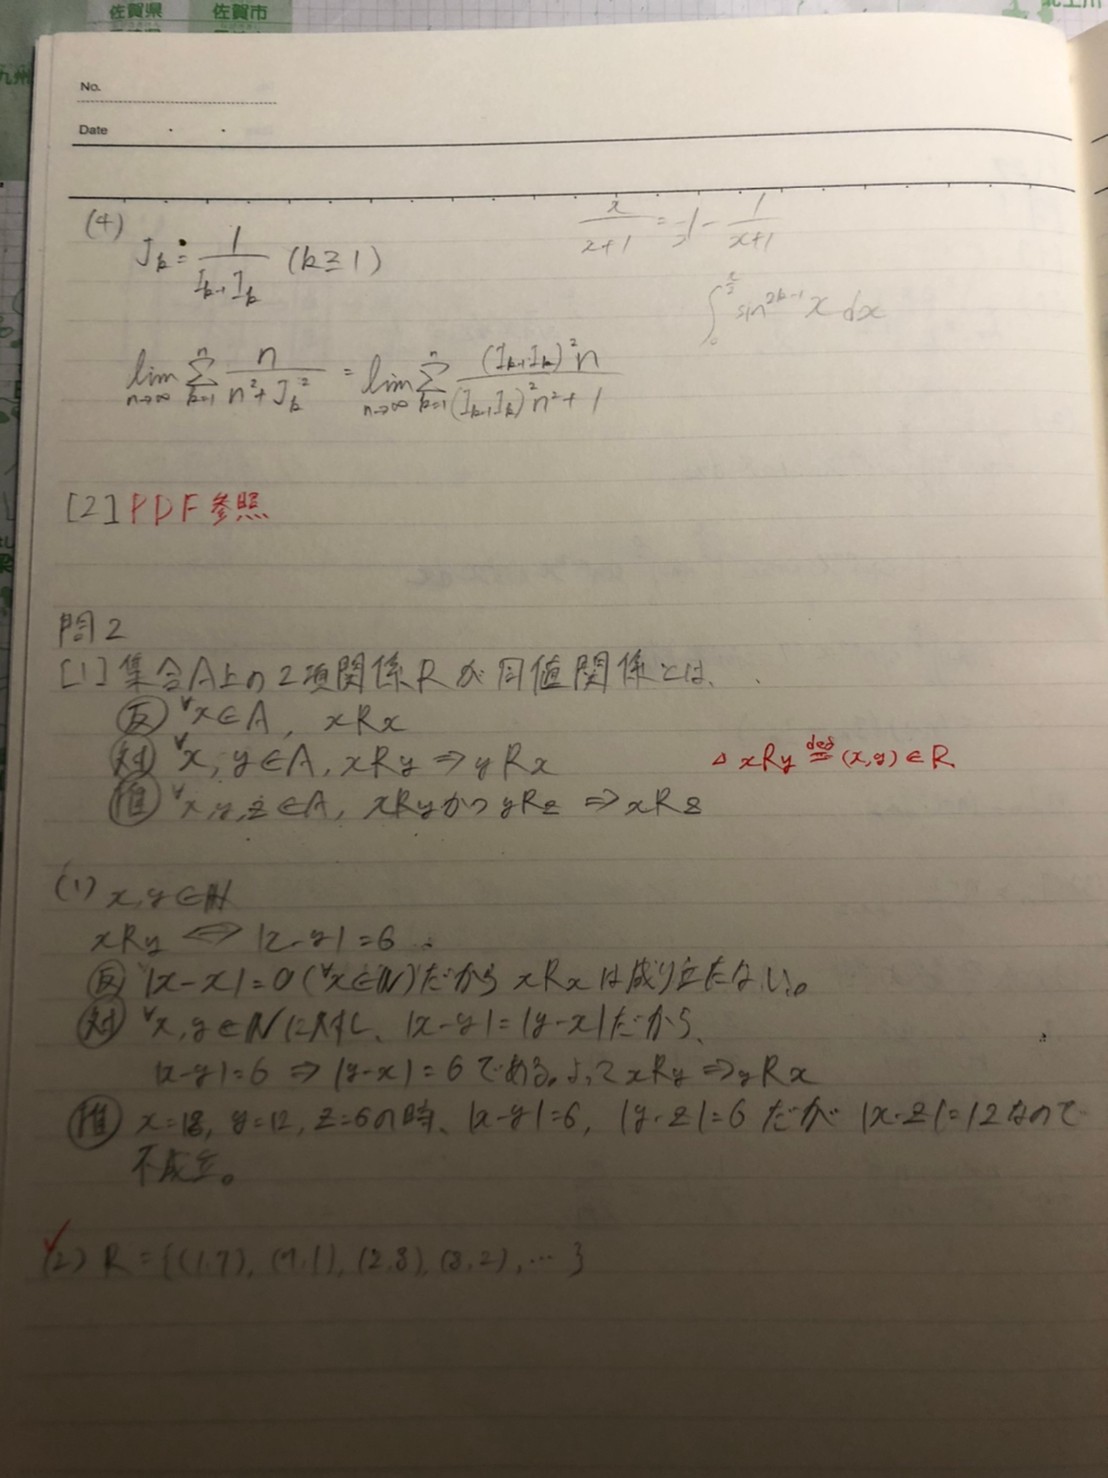 佐賀県 佐賀市
九州
No.
Date
(4) J_k = 1/(I_{k-1} I_k) (k≧1)
x/(x+1) = 1 - 1/(x+1)
∫_0^{π/2} sin^{2k-1} x dx
lim_{n→∞} Σ_{k=1}^{n} n/(n²+J_k²) = lim_{n→∞} Σ_{k=1}^{n} (I_{k-1} I_k)² n/((I_{k-1} I_k)² n²+1)
[2] PDF参照
問2
[1] 集合A上の2項関係Rが同値関係とは、
㊫ ∀x∈A, xRx
対 ∀x, y∈A, xRy ⇒ yRx
△ xRy ≝ (x,y)∈R
推 ∀x,y,z∈A, xRyかつyRz ⇒ xRz
(1) x,y∈ℕ
xRy ⇔ |x-y|=6
反 |x-x|=0 (∀x∈ℕ)だから xRxは成り立たない。
対 ∀x,y∈ℕに対し、|x-y|=|y-x|だから、
|x-y|=6 ⇒ |y-x|=6である。よってxRy ⇒ yRx
推 x=18, y=12, z=6の時、|x-y|=6, |y-z|=6 だが |x-z|=12なので
不成立。
(2) R={(1,7), (7,1), (2,8), (8,2), … }